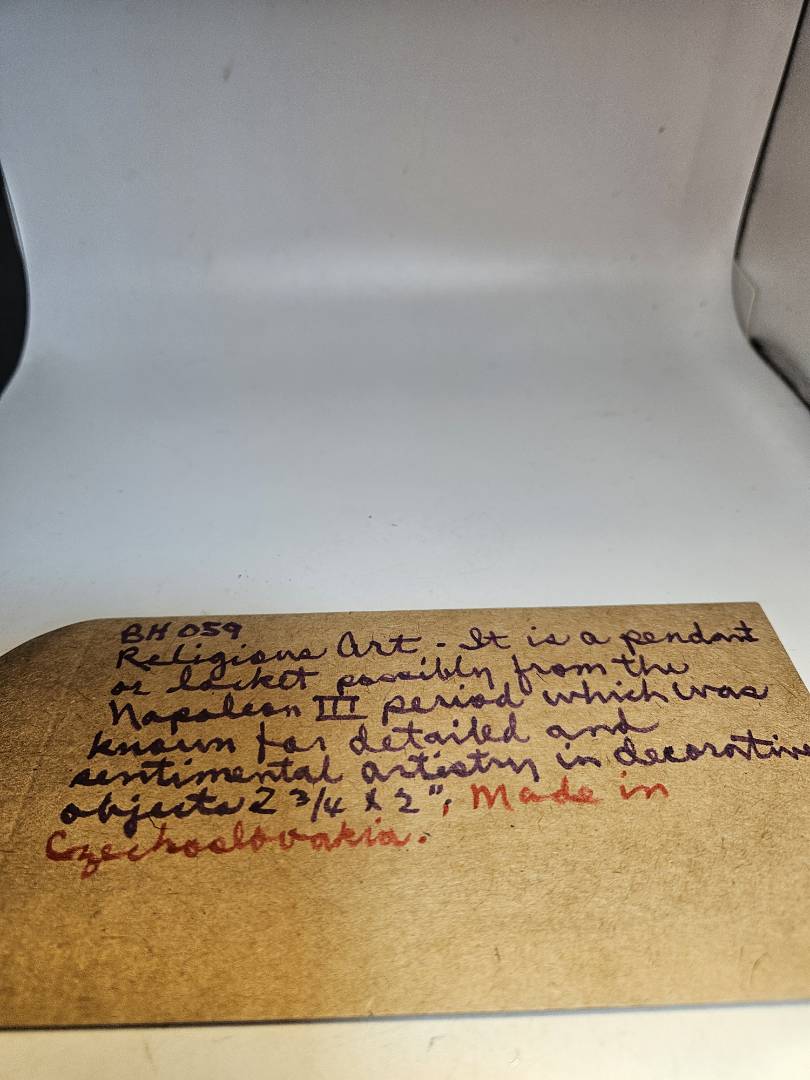 BH 059
Religious Art - It is a pendant
or locket possibly from the
Napoleon III period which was
known for detailed and
sentimental artistry in decorative
objects 2 3/4 x 2", Made in
Czechoslovakia.